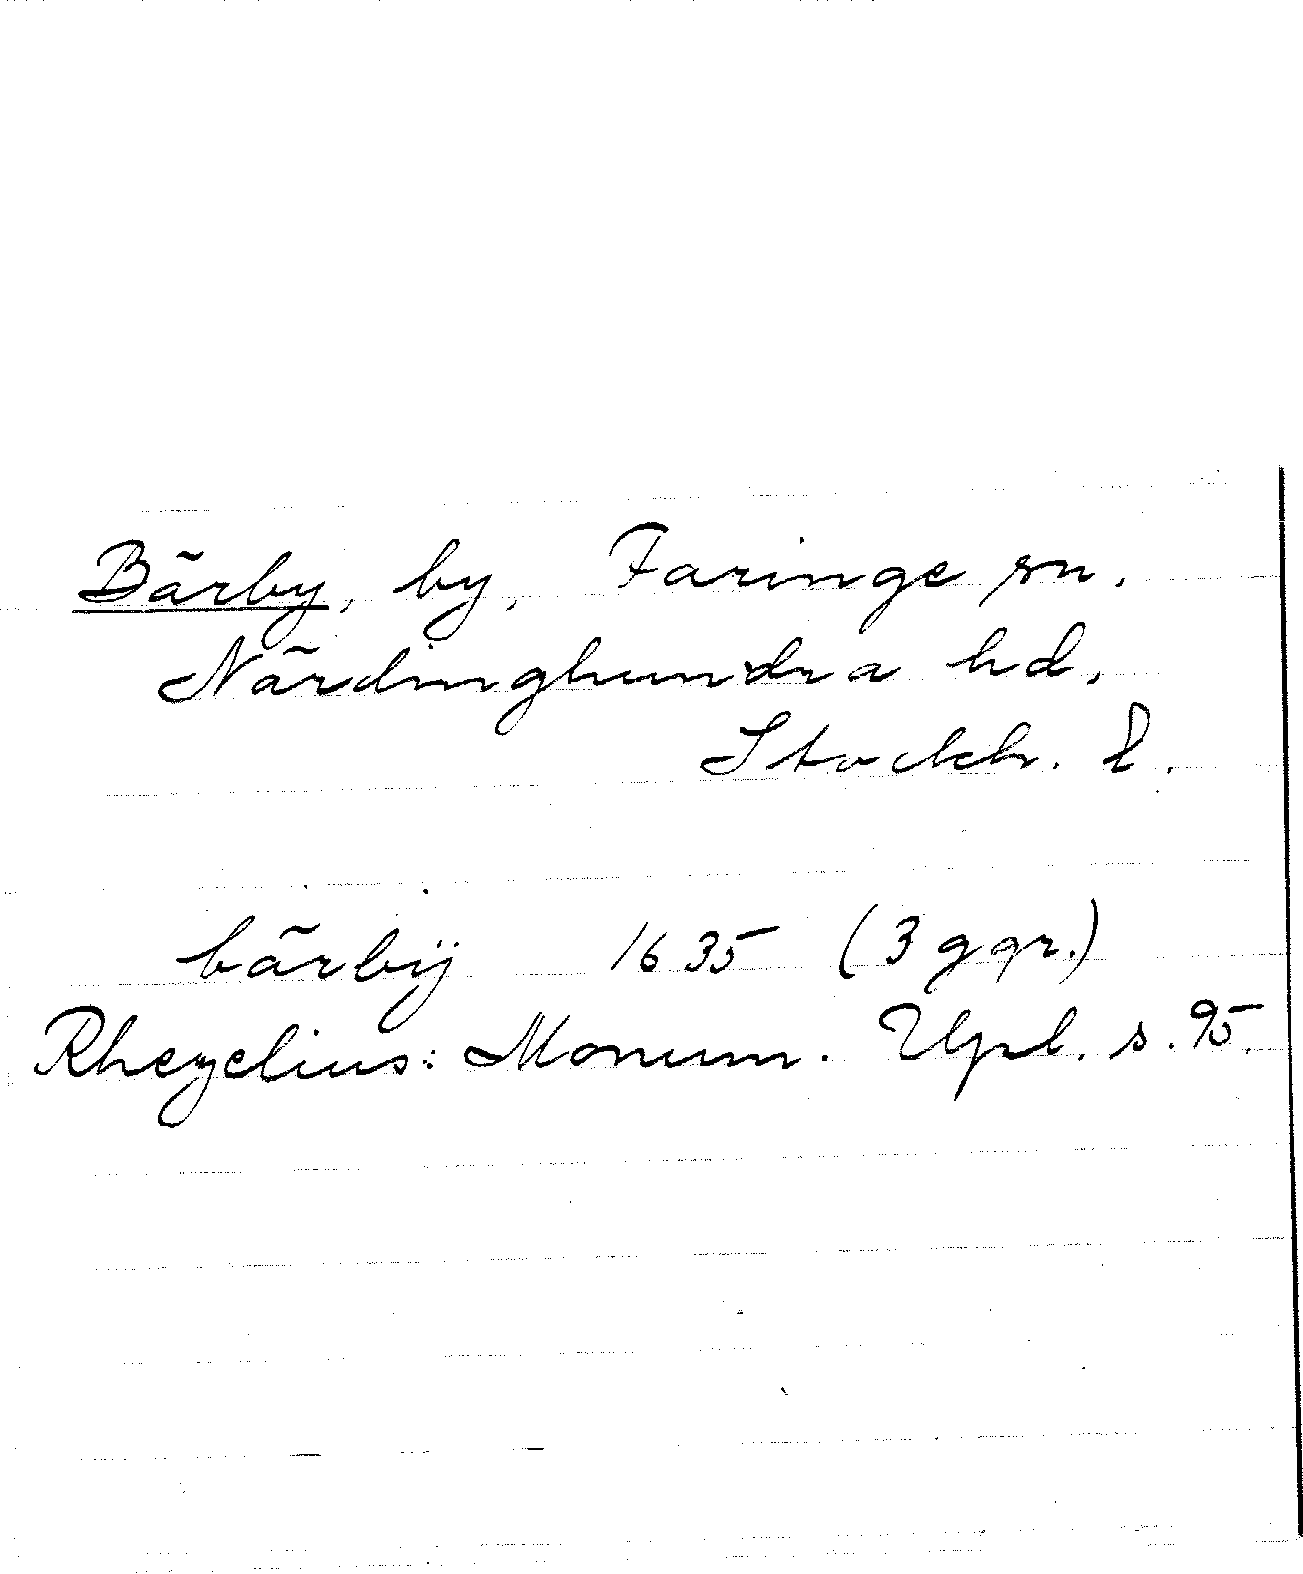 Bärby, by, Faringe sn.
Närdinghundra hd,
Stockh. l.
bärbÿ 1635 (3 ggr.)
Rhezelius: Monum. Upl. s. 95.